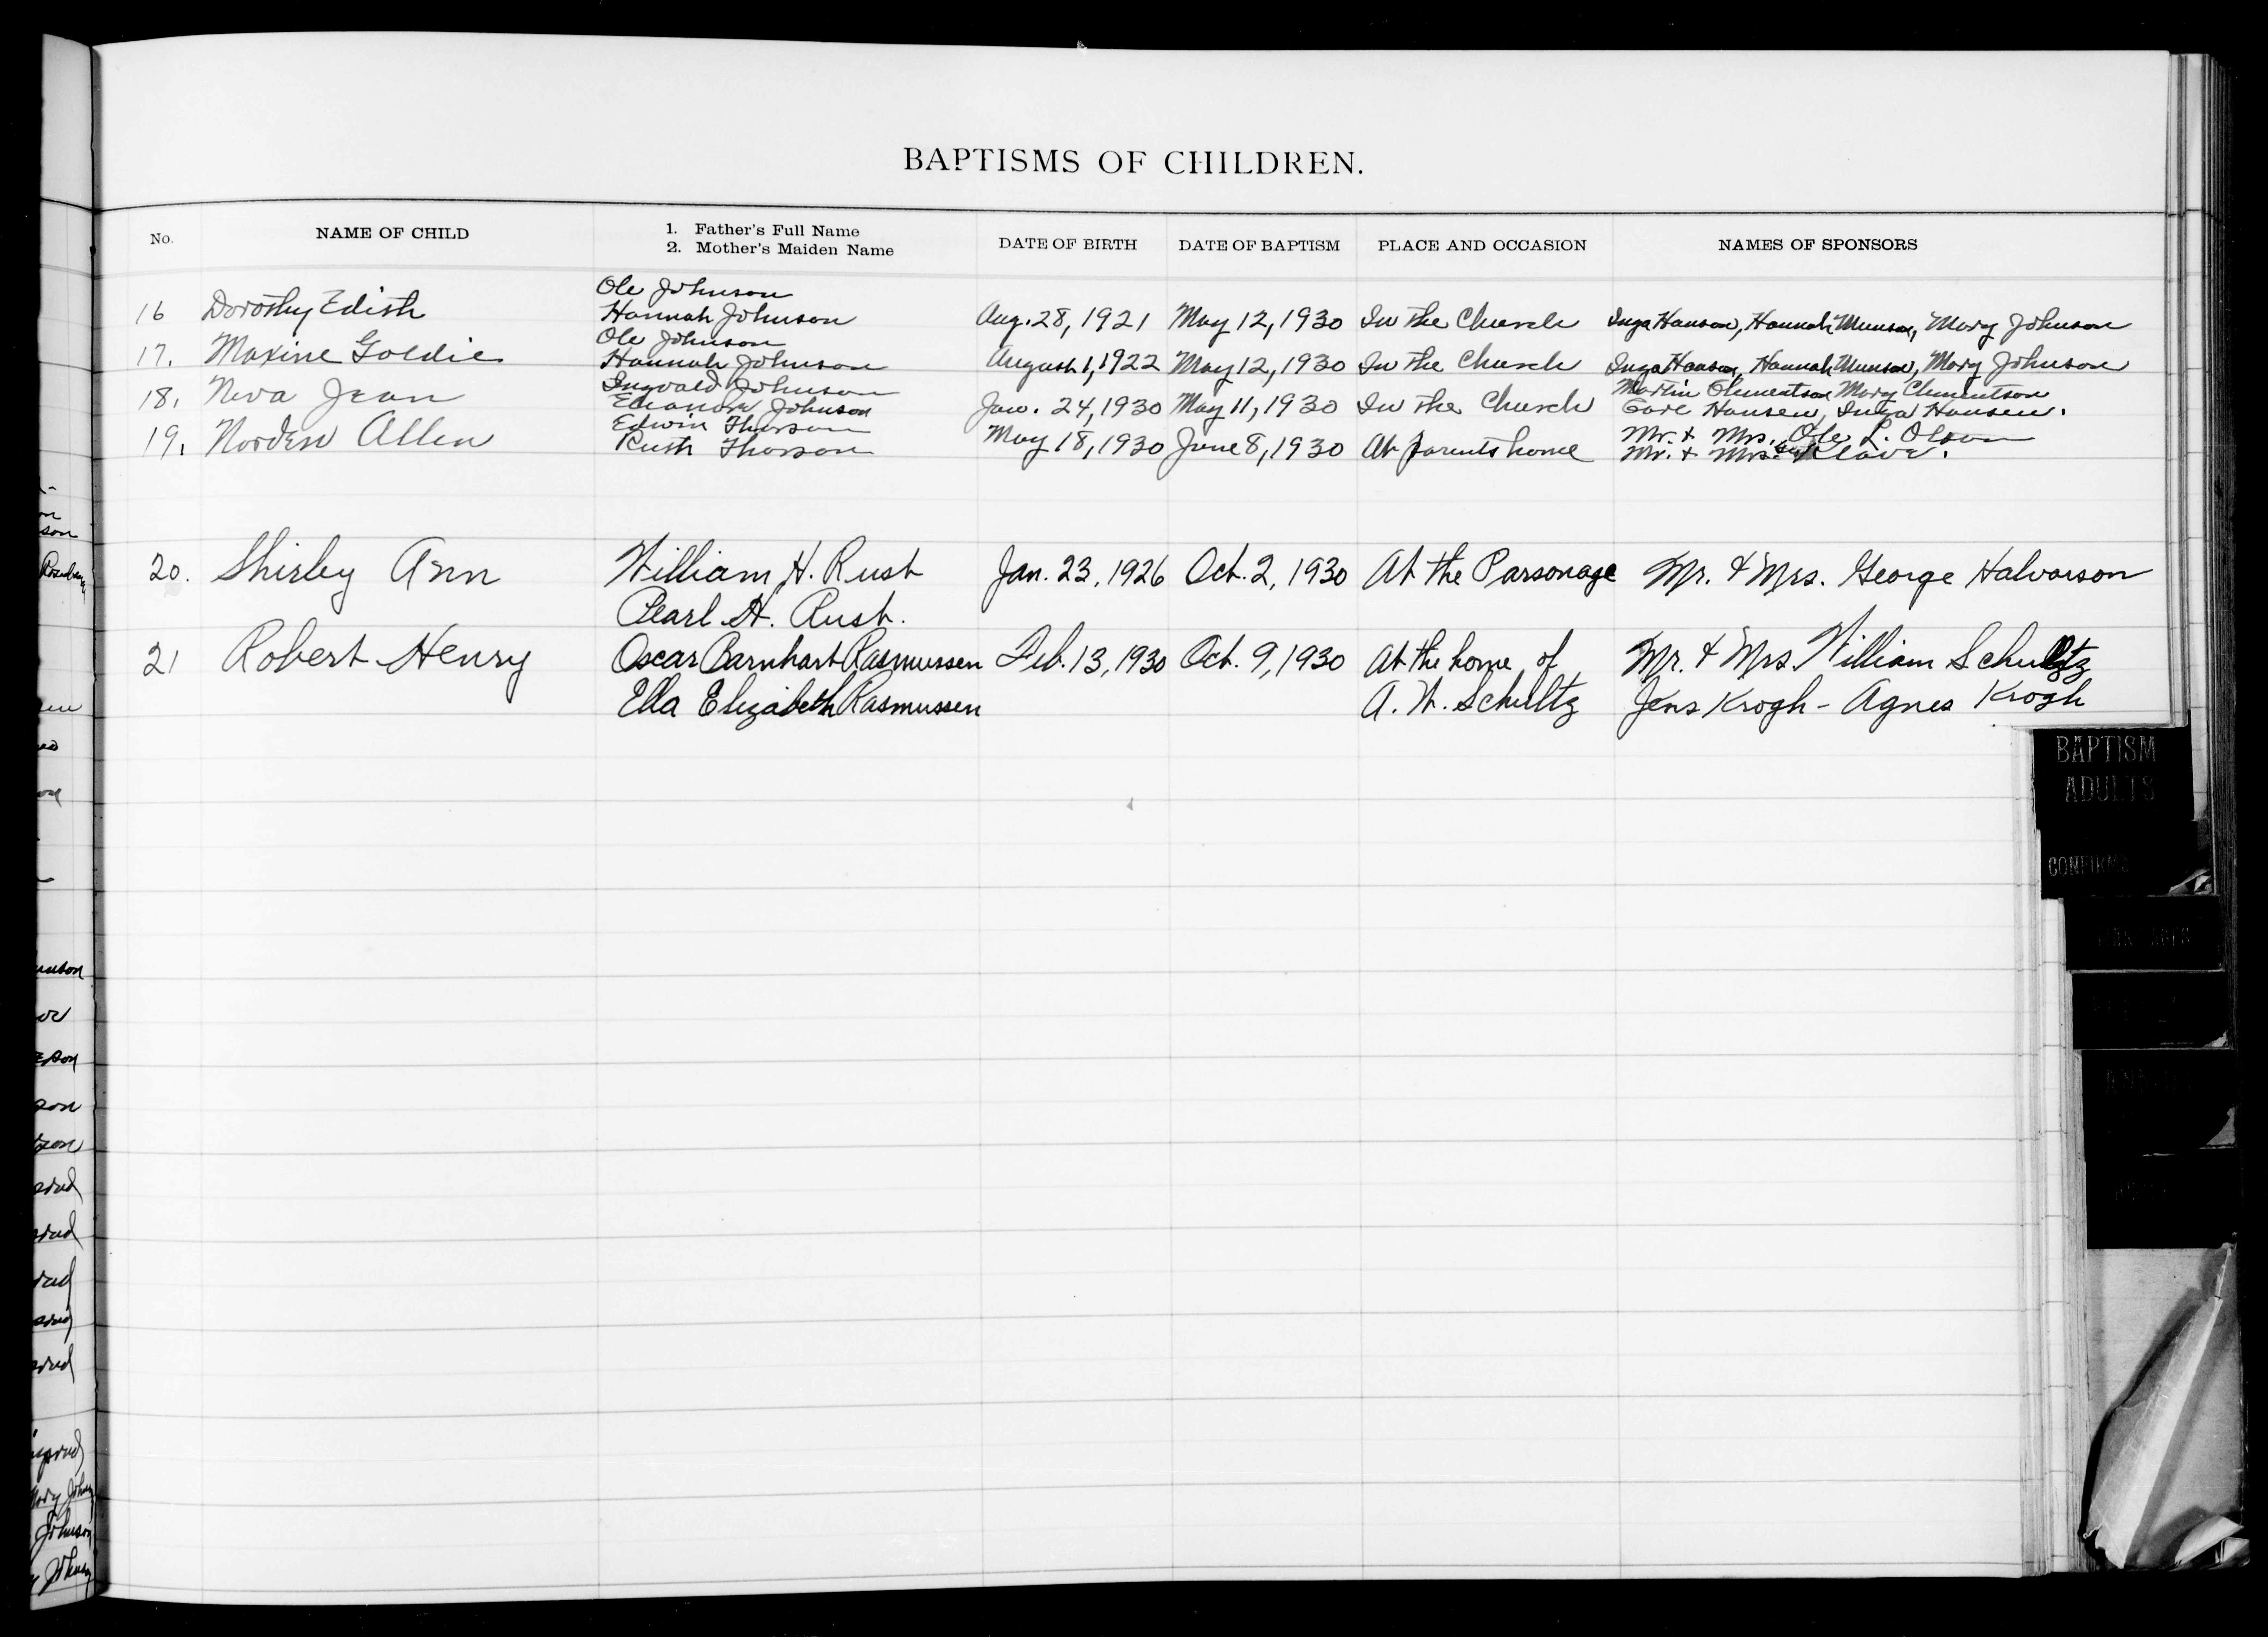 BAPTISMS OF CHILDREN.
No. NAME OF CHILD 1. Father's Full Name 2. Mother's Maiden Name DATE OF BIRTH DATE OF BAPTISM PLACE AND OCCASION NAMES OF SPONSORS
Ole Johnson
16 Dorothy Edith Hannah Johnson Aug. 28, 1921 May 12, 1930 In the Church Inga Hanson, Hannah Munson, Mary Johnson
Ole Johnson
17. Maxine Goldie Hannah Johnson August 1, 1922 May 12, 1930 In the Church Inga Hanson, Hannah Munson, Mary Johnson
Ingvald Johnson Martin Clementson Mary Clementson
18. Neva Jean Eleanora Johnson Jan. 24, 1930 May 11, 1930 In the Church Carl Hansen, Inga Hansen.
Edwin Thorson Mr. & Mrs. Ole L. Olson
19. Norden Allen Ruth Thorson May 18, 1930 June 8, 1930 At parents home Mr. & Mrs. Klove.
20. Shirley Ann William H. Rust Jan. 23, 1926 Oct. 2, 1930 At the Parsonage Mr. & Mrs. George Halvorson
Pearl H. Rust.
21 Robert Henry Oscar Barnhart Rasmussen Feb. 13, 1930 Oct. 9, 1930 At the home of Mr. & Mrs. William Schultz
Ella Elizabeth Rasmussen A. W. Schultz Jens Krogh - Agnes Krogh
BAPTISM
ADULTS
son
Johnson